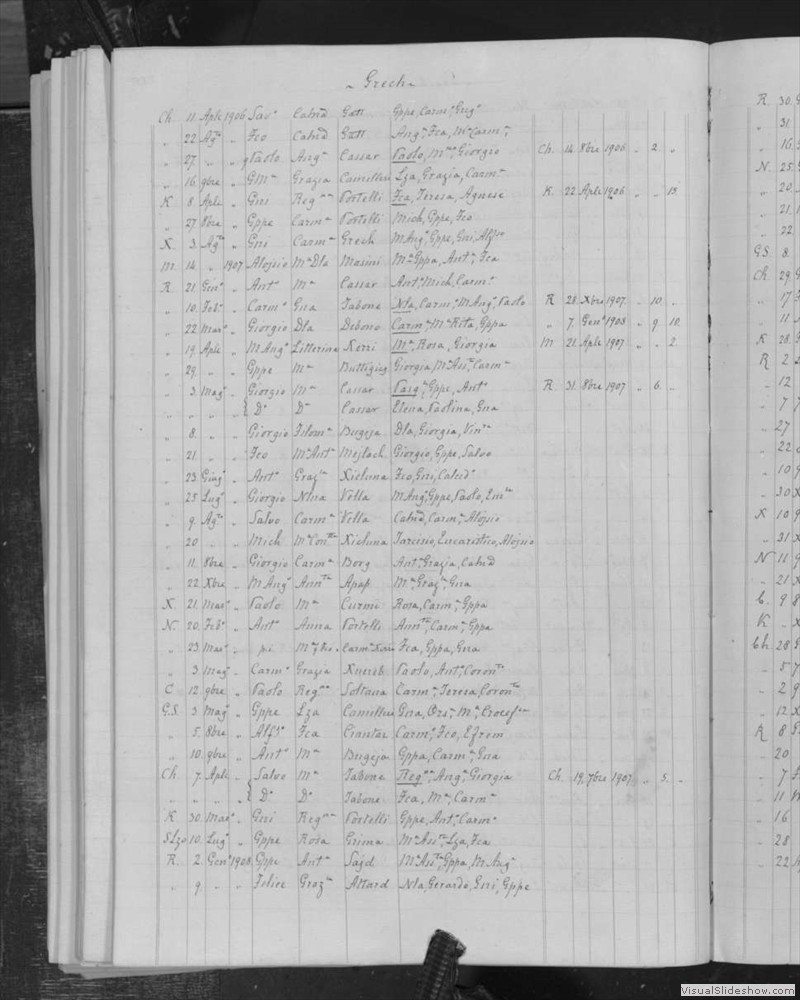 Grech
Ch. 11. Aple 1906 Sav° Catnd Gatt Gppe, Carm°, Grig°
„ 22 Ag° „ Fco Catnd Gatt Ang°, Fca, Ma Carma
„ 27 „ „ Paolo Anga Cassar Paolo, Ma, Giorgio Ch. 14. 8bre 1906 „ 2 „
„ 16 9bre „ GMa Grazia Camilleri Lza, Grazia, Carma
K 8 Aple „ Gni Regna Portelli Fca, Teresa, Agnese K. 22 Aple 1906 „ „ 12.
„ 27 8bre „ Gppe Carma Portelli Mich, Gppe, Fco
X. 3. Ag° „ Gni Carma Grech MAng°, Gppe, Gni, Alfso
M. 14. „ 1907 Aloysio Ma Dla Masini Ma Gppa, Anta, Fca
R. 21 Genn° „ Ant° Ma Cassar Ant°, Mich, Carm°
„ 10. Feb° „ Carm° Gna Tabone Nla, Carma, MAnga, Paolo R 28. Xbre 1907. „ 10. „
„ 22 Marz° „ Giorgio Dla Debono Carma, Ma Rita, Gppa „ 7. Genn° 1908 „ 9. 10.
„ 19. Aple „ MAng° Litterina Xerri Ma, Rosa, Giorgia M 21. Aple 1907 „ „ 2.
„ 29. „ „ Gppe Ma Buttigieg Giorgia, Ma Assta, Carma
„ 3. Mag° „ Giorgio Ma Cassar Pasqa, Gppe, Ant° R. 31. 8bre 1907 „ 6. „
„ „ „ „ { D° D° Cassar Elena, Paolina, Gna
„ 8. „ „ Giorgio Filoma Bugeja Dla, Giorgia, Vinza
„ 21. „ „ Fco Ma Anta Mejlach Giorgio, Gppe, Salvo
„ 23. Giug° „ Ant° Graza Xicluna Fco, Gni, Catnd°
„ 25 Lug° „ Giorgio Ntna Vella MAnga, Gppe, Paolo, Emla
„ 9. Ag° „ Salvo Carma Vella Catnd, Carma, Aloysio
„ 20 „ „ Mich Ma Conta Xicluna Tarcisio, Eucaristico, Aloysio
„ 11. 8bre „ Giorgio Carma Borg Anta, Grazia, Catnd
„ 22. Xbre „ MAng° Annta Apap Ma, Graza, Gna
X. 21. Marz° „ Paolo Ma Curmi Rosa, Carma, Gppa
N. 20. Feb° „ Ant° Anna Portelli Annta, Carma, Gppa
„ 23. Marz° „ Fca, Gppa, Gna
„ 3. Mag° „ Carm° Grazia Xuereb Paolo, Anta, Coronta
C 12 9bre „ Paolo Regna Sultana Carma, Teresa, Coronta
G.S. 3 Mag° „ Gppe Lza Camilleri Gna, Orsa, Ma, Crocefsa
„ 5. 8bre „ Alfs° Fca Ciantar Carm°, Fco, Efrem
„ 10. 9bre „ Ant° Ma Bugeja Gppa, Carma, Gna
Ch. 7. Aple „ Salvo Ma Tabone Regna, Anga, Giorgia Ch. 19. 7bre 1907. „ 5. „
„ „ „ „ { D° D° Tabone Fca, Ma, Carma
K. 30. Marz° „ Gni Regna Portelli Gppe, Ant°, Carm°
SLzo 10. Lug° „ Gppe Rosa Grima Ma Assta, Lza, Fca
R. 2. Genn° 1908 Gppe Anta Sajd Ma Assta, Gppa, MAng°
„ 9. „ „ Felice Graza Attard Nla, Gerardo, Gni, Gppe
R. 30.
„ 31
„ 16.
N. 25
„ 20
„ 21.
„ 22
GS 8.
Ch 29.
„ 17
„ 11
K 28.
R 2
„ 12
„ 7
„ 27
„ 22
„ 10
„ 30
K 10
„ 31
N 11
„ 21
C. 9
K
Ch. 28
„ 5
„ 2
„ 12
R 8
„ 20
„ 7
„ 11
„ 16
„ 28
„ 22
VisualSlideshow.com